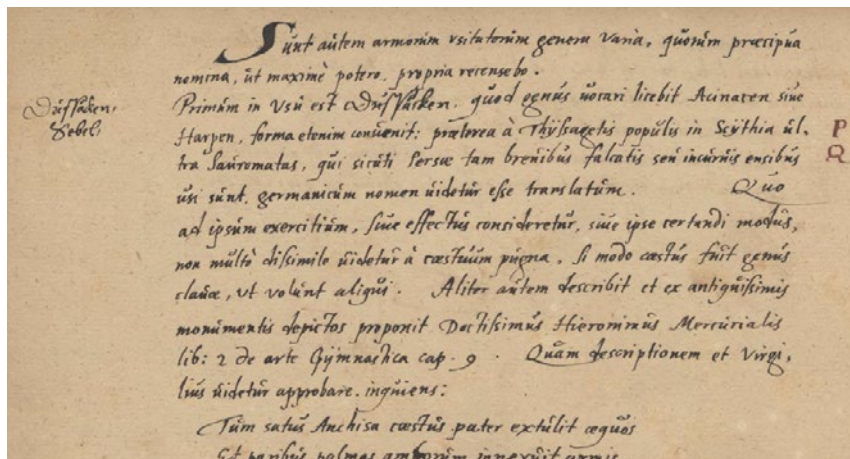 Sunt autem armorum vsitatorum genera varia, quorum præcipua
nomina, ut maximè potero, propria recensebo.
Dussacken,
Sebel,
Primùm in Vsu est Dussacken. quod genus uocari licebit Acinacen siue
Harpen, forma etenim conuenit: præterea à Thyssagetis populis in Scythia ul,
tra Sauromatas, qui sicuti Persæ tam breuibus falcatis seu incuruis ensibus
usi sunt, germanicum nomen uidetur esse translatum. Quo
ad ipsum exercitium, siue effectus consideretur, siue ipse certandi modus,
non multò dissimile uidetur à cæstuum pugna, si modo cæstus fuit genus
clauæ, vt volunt aliqui. Aliter autem describit et ex antiquissimis
monumentis depictos proponit Doctissimus Hieronimus Mercurialis
lib: 2 de arte Gymnastica cap. 9. Quam descriptionem et Virgi,
lius uidetur approbare, inquiens:
Tum satus Anchisa cæstus pater extulit æquos
Et paribus palmas amborum innexuit armis
P
Q